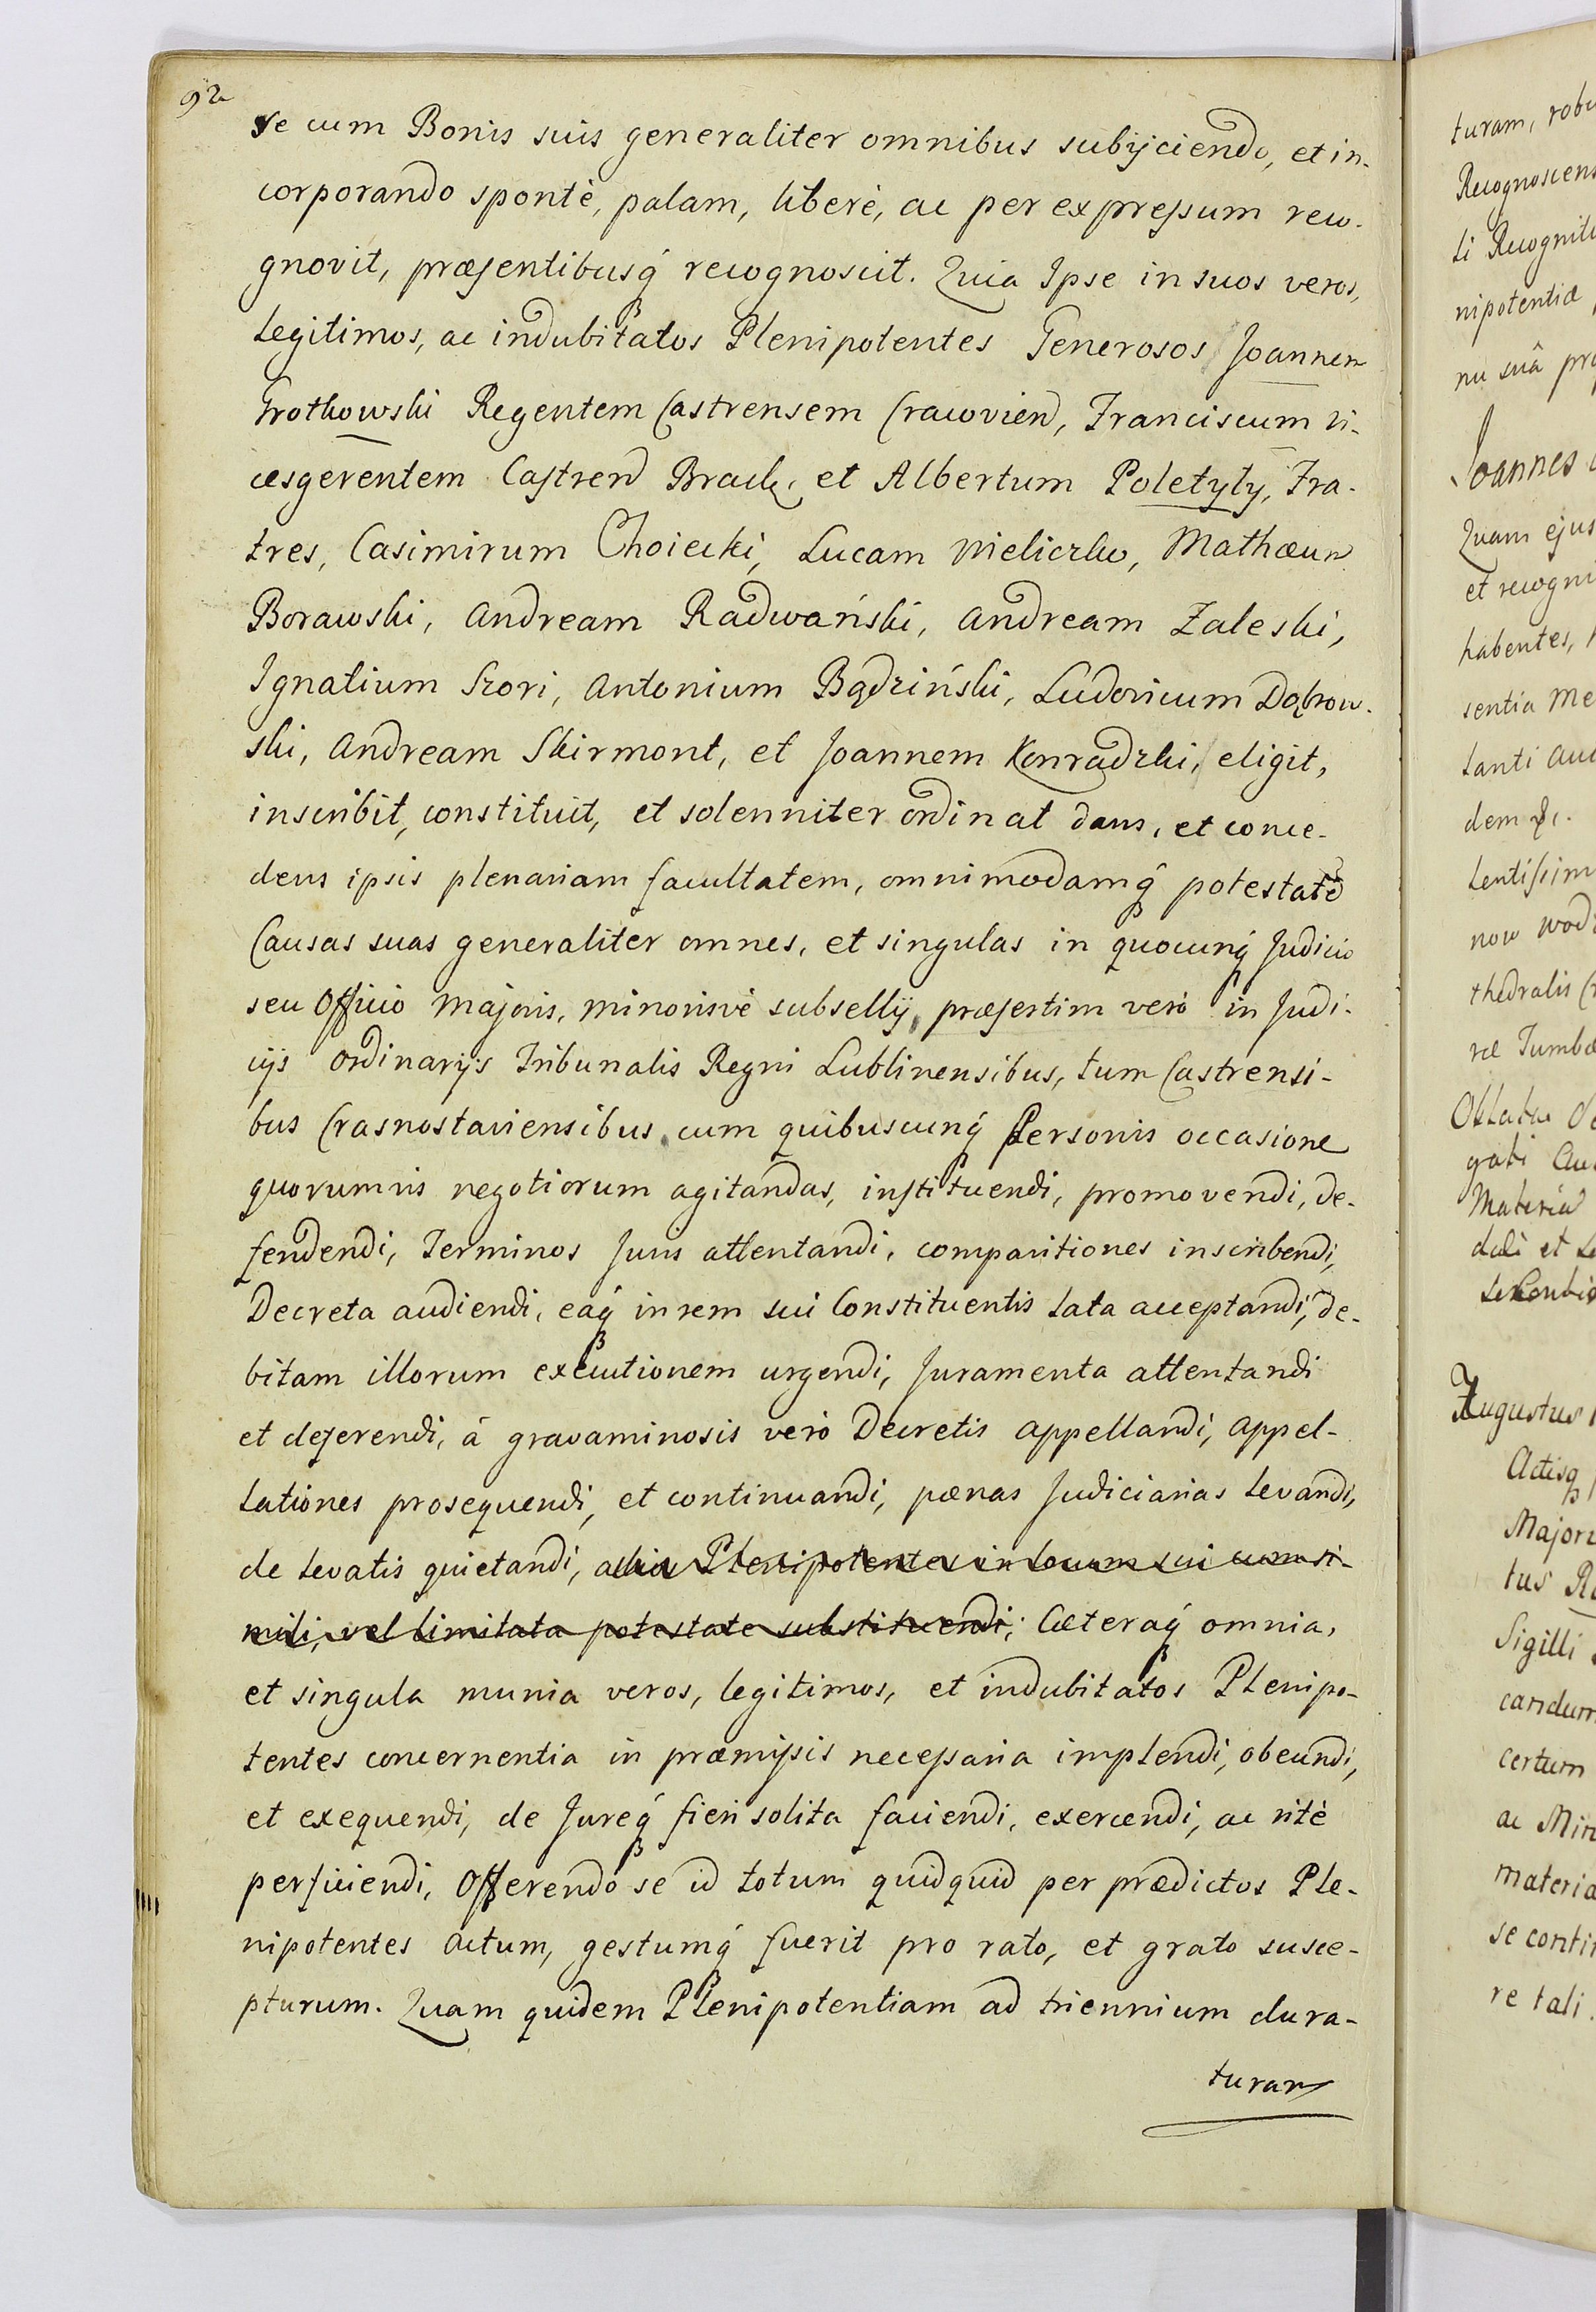 92
se cum Bonis suis generaliter omnibus subijciendo, et in-
corporando spontè, palam, liberè, ac per expressum reco-
gnovit, præsentibusq́ recognoscit. Quia Ipse in suos veros,
legitimos, ac indubitatos Plenipotentes Generosos Joannem
Trotkowski Regentem Castrensem Cracovien, Franciscum Vi-
cesgerentem Castren Bracł. et Albertum Poletyły, Fra-
tres, Casimirum Choiecki, Lucam Mieliczko, Mathæum
Borawski, Andream Radwański, Andream Zaleski,
Ignatium Skori, Antonium Bądziński, Ludovicum Dąbrow-
ski, Andream Skirmont, et Joannem Konradzki, eligit,
inscribit, constituit, et solenniter ordinat dans, et conce-
dens ipsis plenariam facultatem, omnimodamq́ potestatē
Causas suas generaliter omnes, et singulas in quocunq́ Judicio
seu Officio majoris, minorisvè subsellij, præsertim verò in Judi-
cijs Ordinarijs Tribunalis Regni Lublinensibus, tum Castrensi-
bus Crasnostaviensibus cum quibuscunq́ Personis occasione
quorumvis negotiorum agitandas, instituendi, promovendi, de-
fendendi, Terminos Juris attentandi, comparitiones inscribendi,
Decreta audiendi, eaq́ in rem sui Constituentis lata acceptandi, de-
bitam illorum executionem urgendi, Juramenta attentandi
et deferendi, á gravaminosis verò Decretis appellandi, appel-
lationes prosequendi, et continuandi, pœnas Judiciarias levandi,
de levatis quietandi, alios Plenipotentes in locum sui cum si-
mili, vel limitata potestate substituendi; Cæteraq́ omnia,
et singula munia veros, legitimos, et indubitatos Plenipo-
tentes concernentia in præmissis necessaria implendi, obeundi,
et exequendi, de Jureq́ fieri solita faciendi, exercendi, ac ritè
perficiendi, Offerendo se id totum quidquid per prædictos Ple-
nipotentes actum, gestumq́ fuerit pro rato, et grato susce-
pturum. Quam quidem Plenipotentiam ad triennium dura-
turam
turam, robu
Recognoscens
li Recognit
nipotentiæ
nu suâ pro
Joannes
Quam ejus
et recogni
habentes,
sentia Me
tanti Auc
dem
lentissim
now Wod
thedralis
ræ Tumbæ
Oblatæ
grati
Materia
dali et
Augustus
Actisq
Majori
tus
Sigilli
candum
certum
ac Min
materia
se contin
re tali.